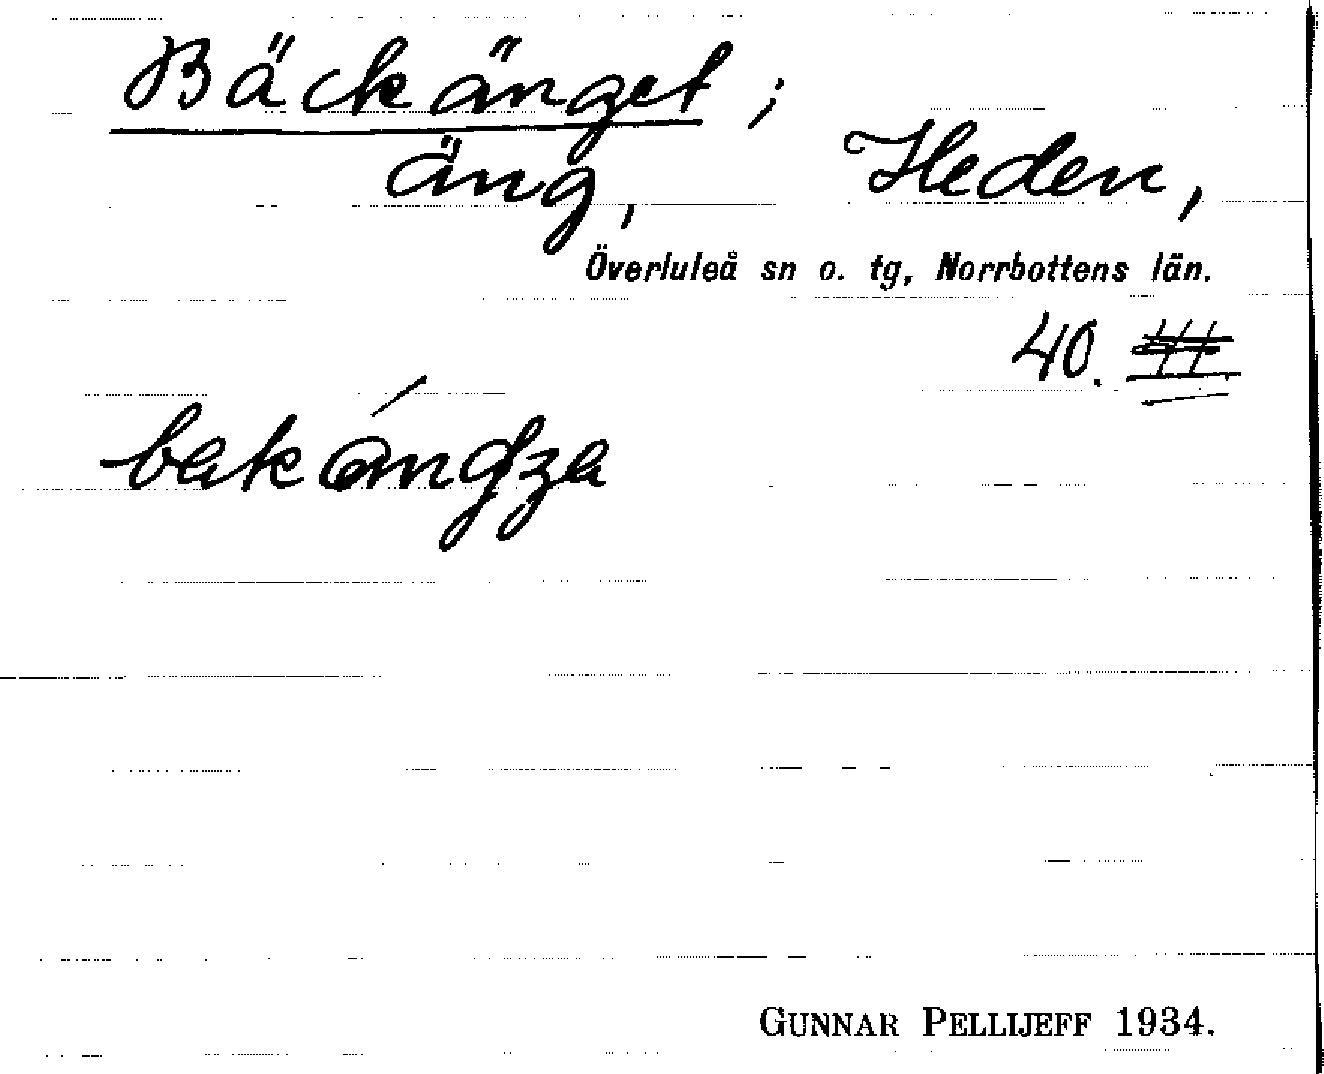 Bäckänget;
äng, Heden,
Överluleå sn o. tg, Norrbottens län.
40.
GUNNAR PELLIJEFF 1934.